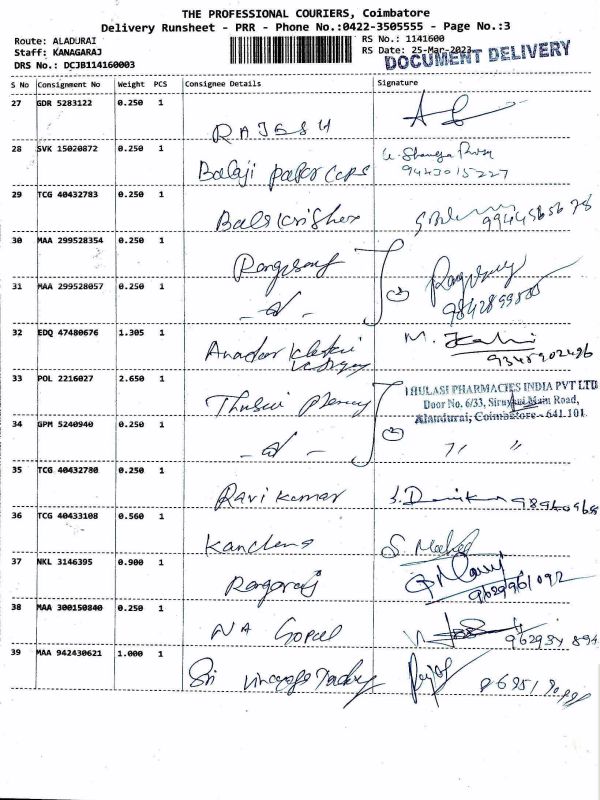 THE PROFESSIONAL COURIERS, Coimbatore
Delivery Runsheet - PRR - Phone No.:0422-3505555 - Page No.:3
Route: ALADURAI
Staff: KANAGARAJ
DRS No.: DCJB114160003
RS No.: 1141600
RS Date: 25-Mar-2023
DOCUMENT DELIVERY
S No Consignment No Weight PCS Consignee Details Signature
27 GDR 5283122 0.250 1
RAJESH
28 SVK 15020872 0.250 1
Balaji paper cups
9443015227
29 TCG 40432783 0.250 1
Balakrishna
9944565678
30 MAA 299528354 0.250 1
Rangasamy
31 MAA 299528057 0.250 1
32 EDQ 47480676 1.305 1
M.
9345902496
33 POL 2216027 2.650 1
THULASI PHARMACIES INDIA PVT LTD
Door No. 6/33, Siruvani Main Road,
Alandurai, Coimbatore - 641 101.
34 GPM 5240940 0.250 1
35 TCG 40432780 0.250 1
Ravi kumar
36 TCG 40433108 0.560 1
37 NKL 3146395 0.900 1
Rangaraj
9629961092
38 MAA 300150840 0.250 1
NA Gopal
39 MAA 942430621 1.000 1
Sri